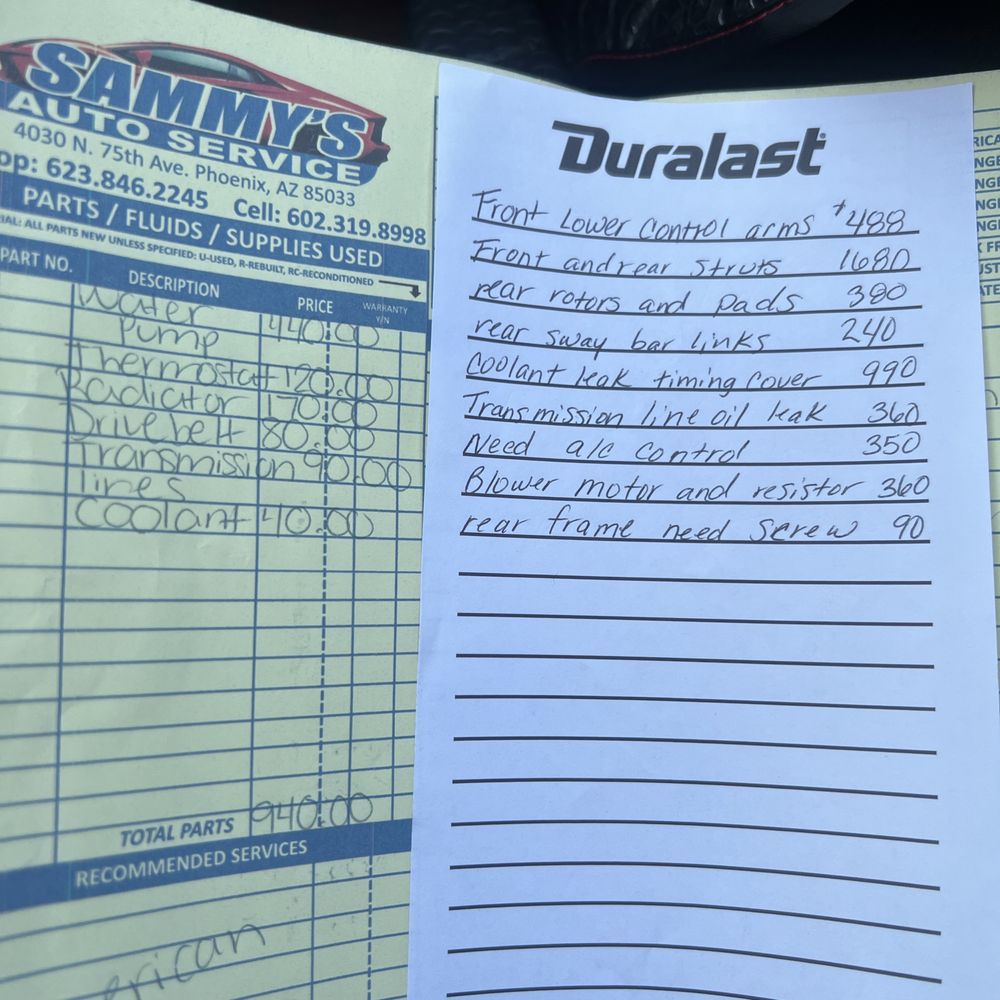 SAMMY'S
AUTO SERVICE
4030 N. 75th Ave. Phoenix, AZ 85033
op: 623.846.2245 Cell: 602.319.8998
PARTS / FLUIDS / SUPPLIES USED
IAL: ALL PARTS NEW UNLESS SPECIFIED: U-USED, R-REBUILT, RC-RECONDITIONED
PART NO. DESCRIPTION PRICE WARRANTY Y/N
Water 440.00
Pump
Thermostat 120.00
Radiator 170.00
Drive belt 80.00
Transmission 90.00
lines
Coolant 40.00
TOTAL PARTS 940.00
RECOMMENDED SERVICES
erican
Duralast
Front Lower control arms $488
Front and rear struts 1680
rear rotors and pads 380
rear sway bar links 240
coolant leak timing cover 990
Transmission line oil leak 360
Need a/c control 350
Blower motor and resistor 360
rear frame need screw 90